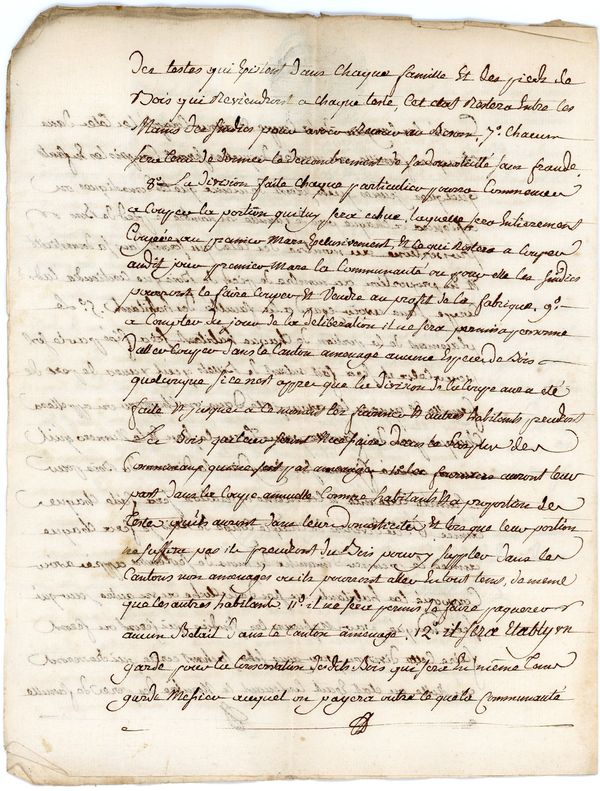 des testes qui Existont dans chaque famille Et des pieds de
Bois qui Reviendront a chaque teste, Cet etat Restera Entre les
Mains des sindics pour avoir Recours au Besoin, 7° Chacun
sera tenu de donner le denombrement de sa domesticité sans fraude.
8° La division faite Chaque particulier pourra Commencer
a Couper la portion qui luy sera echue, laquelle sera Entierement
Coupée au premier Mars Exclusivement, Et Ce qui Restera a Couper
audit jour premier Mars la Communauté ou pour elle les sindics
pourront le faire Couper Et Vendre au profit de la fabrique, 9°
a Compter du jour de la deliberation il ne sera permis a personne
d'aller Couper dans le Canton amenagé aucune Espece de Bois
quelconque si ce nest apres que la division de la Coupe aura été
faite Et jusque a ce moment les fermiers Et autres habitants prendront
le Bois qui leur sera Necessaire dans le surplus des
Communaux qui ne sont pas amenagés 10° les fermiers auront leur
part dans la Coupe annuelle Comme habitants Et a proportion des
teste quils auront dans leur domesticité Et lorsque leur portion
ne suffira pas ils prendront du Bois pour y suppleer dans les
Cantons non amenagés ou ils pourront aller En tout tems, de meme
que les autres habitans 11° il ne sera permis de faire paquerer
aucun Betail dans le Canton amenagé, 12° il sera Etably un
garde pour la Conservation desdits Bois qui sera En même tems
garde Messier auquel on payera outre le gage de la Communauté